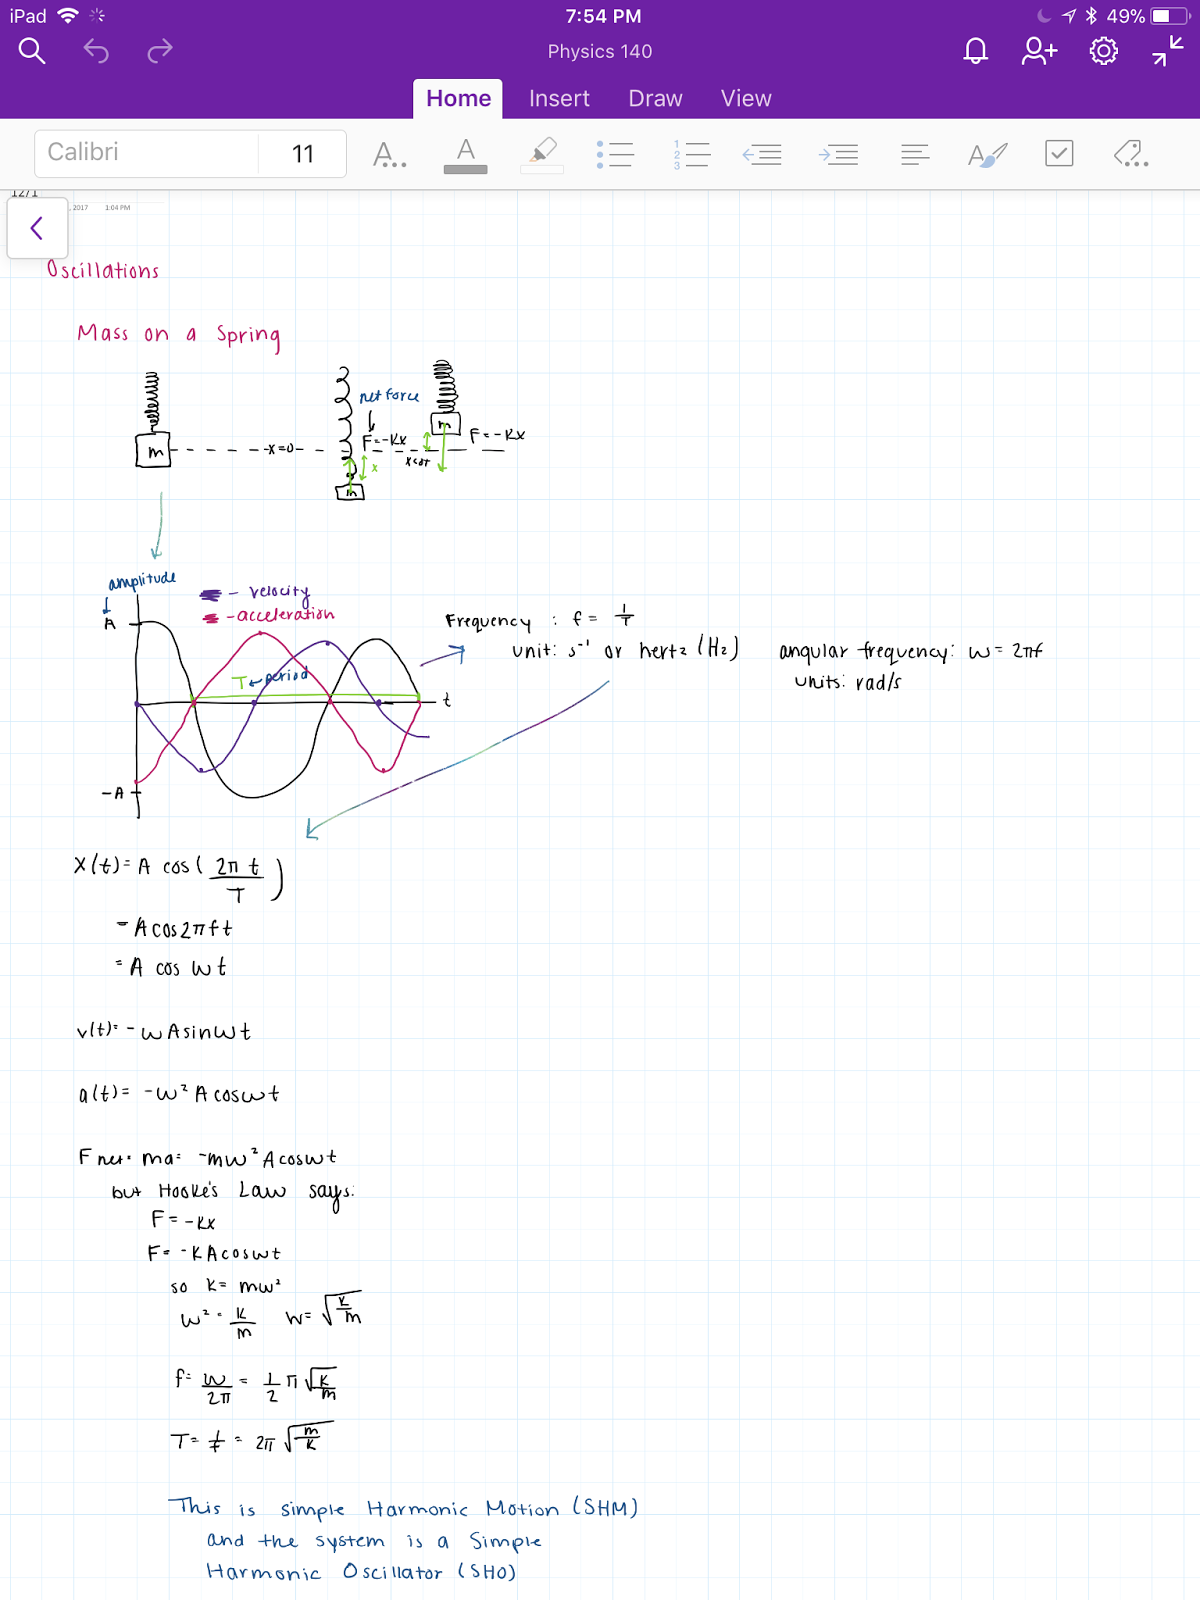 iPad 7:54 PM 49%
Physics 140
Home Insert Draw View
Calibri 11 A.. A
12/1
, 2017 1:04 PM
Oscillations
Mass on a Spring
net force
m
m
F=-Kx
F=-Kx
m -x=0-
x
m
amplitude
- velocity
-acceleration
A
T ← period
t
-A
Frequency : f = 1/T
unit: s⁻¹ or hertz (Hz)
angular frequency: w = 2πf
units: rad/s
x(t)= A cos ( 2π t / T )
= A cos 2π f t
= A cos wt
v(t)= - w A sin w t
a(t)= -w² A cos wt
F net = ma = -mw² A cos wt
but Hooke's Law says:
F = -Kx
F = -K A cos wt
so K = mw²
w² = K/m w= √K/m
f = w/2π = 1/2 π √K/m
T = 1/f = 2π √m/K
This is simple Harmonic Motion (SHM)
and the system is a Simple
Harmonic Oscillator (SHO)